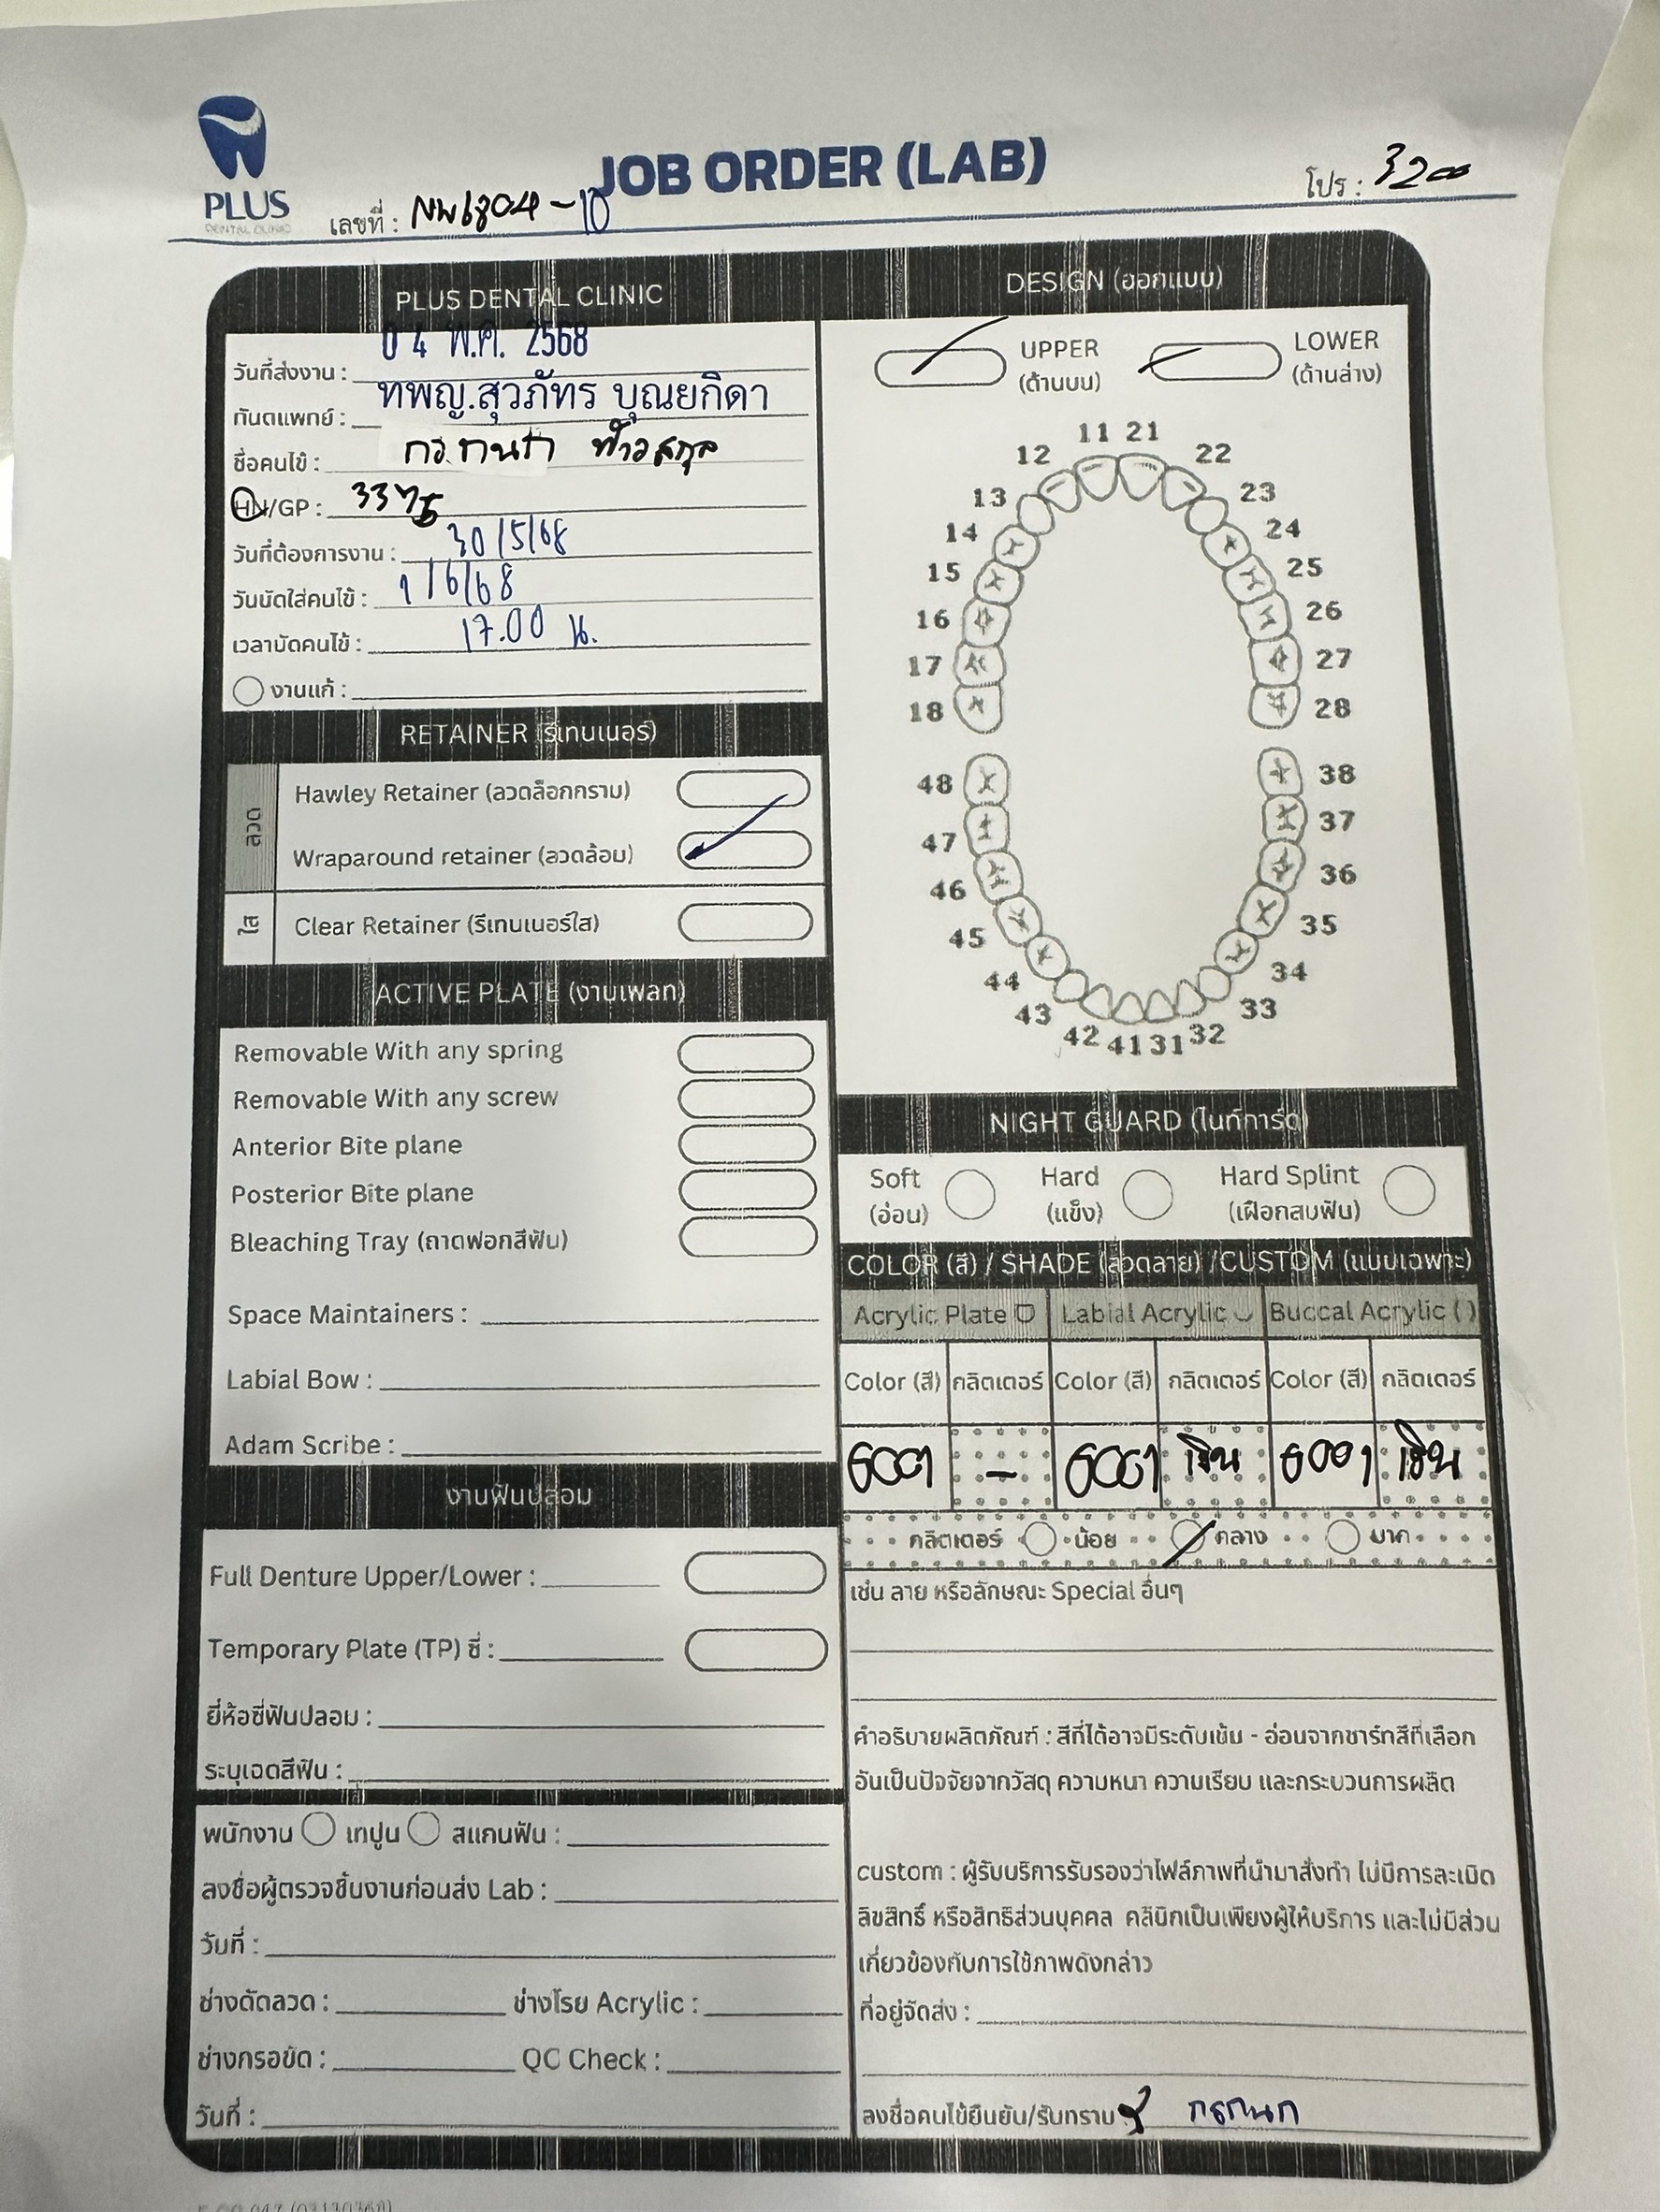 PLUS
DENTAL CLINIC
JOB ORDER (LAB)
เลขที่ : NW6804-10
โปร : 3200
PLUS DENTAL CLINIC
วันที่ส่งงาน : 04 พ.ค. 2568
ทันตแพทย์ : ทพญ.สุวภัทร บุณยกิดา
ชื่อคนไข้ :
HN/GP : 3375
วันที่ต้องการงาน : 30/5/68
วันนัดใส่คนไข้ : 1/6/68
เวลานัดคนไข้ : 17.00 น.
งานแก้ :
RETAINER (รีเทนเนอร์)
ลวด
Hawley Retainer (ลวดล็อกกราม)
Wraparound retainer (ลวดล้อม)
ใส
Clear Retainer (รีเทนเนอร์ใส)
ACTIVE PLATE (งานเพลท)
Removable With any spring
Removable With any screw
Anterior Bite plane
Posterior Bite plane
Bleaching Tray (ถาดฟอกสีฟัน)
Space Maintainers :
Labial Bow :
Adam Scribe :
งานฟันปลอม
Full Denture Upper/Lower :
Temporary Plate (TP) ซี่ :
ยี่ห้อซี่ฟันปลอม :
ระบุเฉดสีฟัน :
พนักงาน เทปูน สแกนฟัน :
ลงชื่อผู้ตรวจชิ้นงานก่อนส่ง Lab :
วันที่ :
ช่างดัดลวด : ช่างโรย Acrylic :
ช่างกรอขัด : QC Check :
วันที่ :
DESIGN (ออกแบบ)
UPPER
(ด้านบน)
LOWER
(ด้านล่าง)
11 21
12 22
13 23
14 24
15 25
16 26
17 27
18 28
48 38
47 37
46 36
45 35
44 34
43 33
42 41 31 32
NIGHT GUARD (ไนท์การ์ด)
Soft Hard Hard Splint
(อ่อน) (แข็ง) (เฝือกสบฟัน)
COLOR (สี) / SHADE (ลวดลาย) /CUSTOM (แบบเฉพาะ)
Acrylic Plate Labial Acrylic Buccal Acrylic ( )
Color (สี) กลิตเตอร์ Color (สี) กลิตเตอร์ Color (สี) กลิตเตอร์
6001 - 6001 เงิน 6001 เงิน
กลิตเตอร์ น้อย กลาง มาก
เช่น ลาย หรือลักษณะ Special อื่นๆ
คำอธิบายผลิตภัณฑ์ : สีที่ได้อาจมีระดับเข้ม - อ่อนจากชาร์ทสีที่เลือก
อันเป็นปัจจัยจากวัสดุ ความหนา ความเรียบ และกระบวนการผลิต
custom : ผู้รับบริการรับรองว่าไฟล์ภาพที่นำมาสั่งทำ ไม่มีการละเมิด
ลิขสิทธิ์ หรือสิทธิส่วนบุคคล คลินิกเป็นเพียงผู้ให้บริการ และไม่มีส่วน
เกี่ยวข้องกับการใช้ภาพดังกล่าว
ที่อยู่จัดส่ง :
ลงชื่อคนไข้ยืนยัน/รับทราบ กรกนก